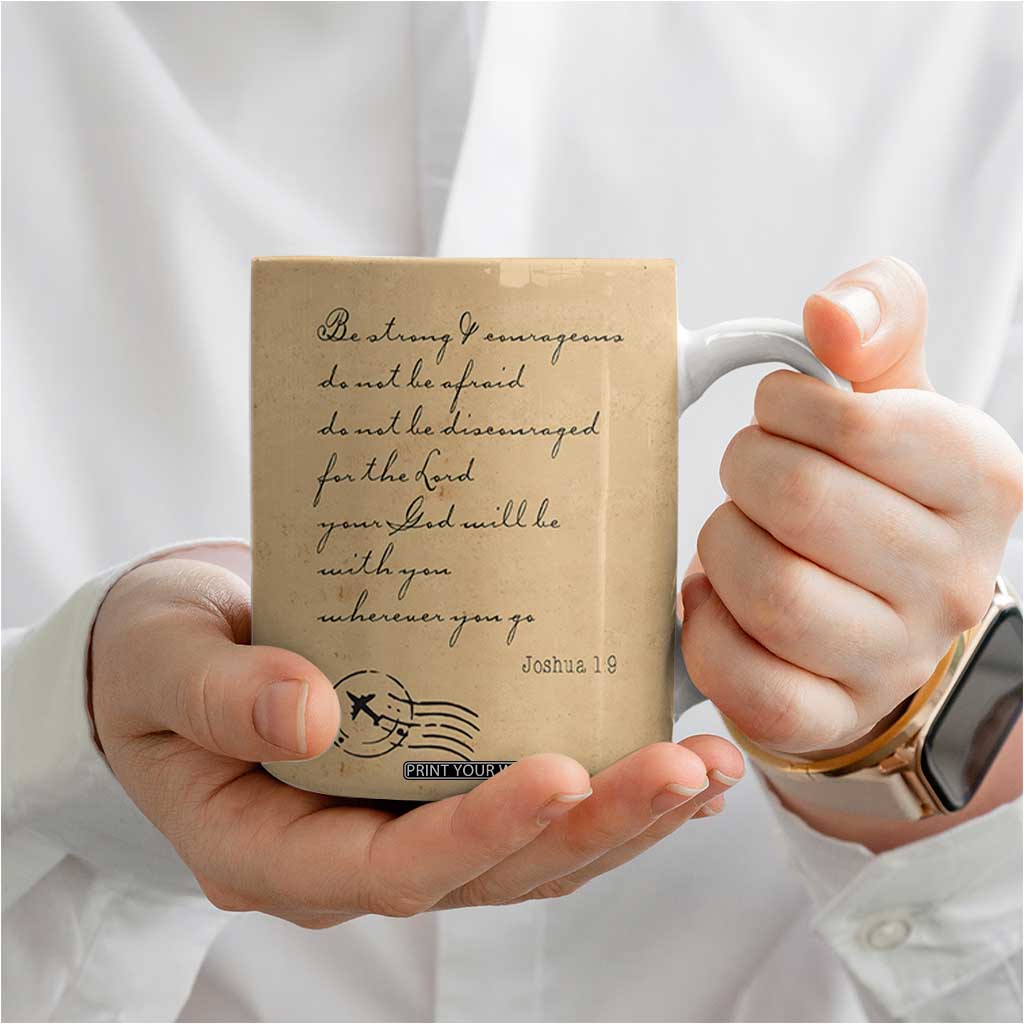 Be strong & courageous
do not be afraid
do not be discouraged
for the Lord
your God will be
with you
wherever you go
Joshua 1:9
PRINT YOUR